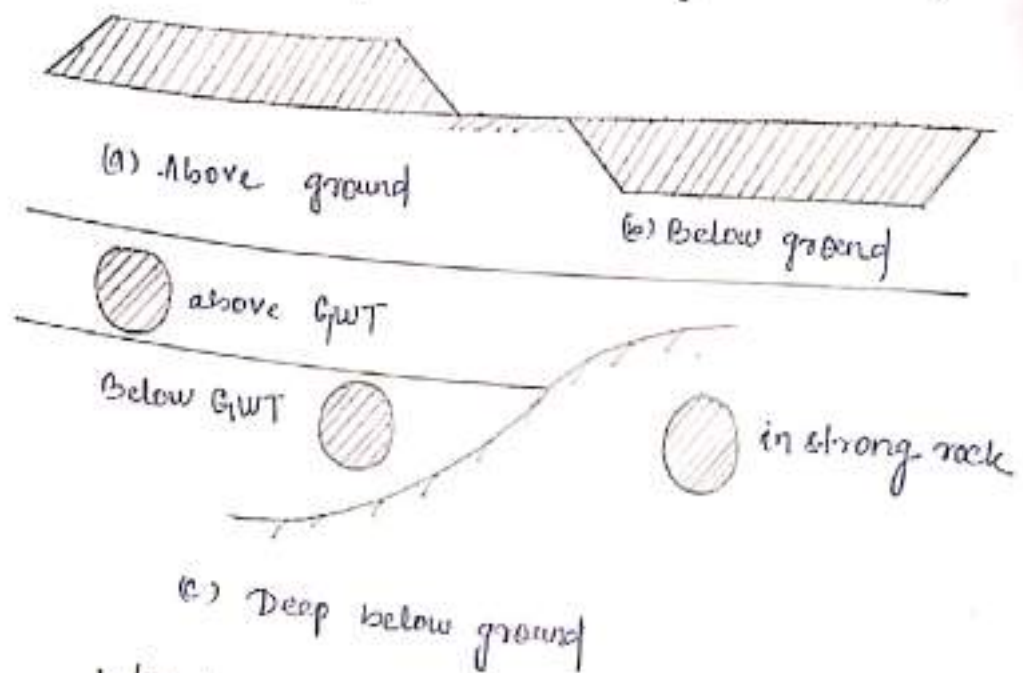 (a) Above ground
(b) Below ground
above GWT
Below GWT
in strong rock
(c) Deep below ground